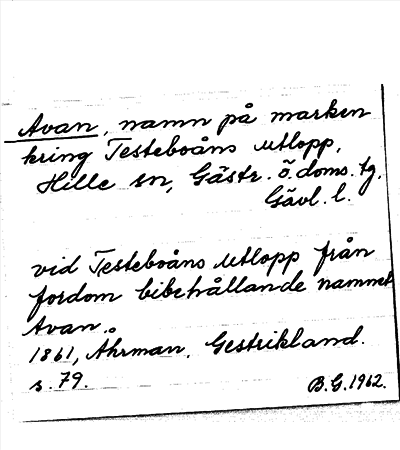 Avan, namn på marken
kring Testeboåns utlopp,
Hille sn, Gästr. ö. doms. tg.
Gävl. l.
vid Testeboåns utlopp från
fordom bibehållande namnet
Avan.
1861, Ahrman, Gestrikland.
s. 79.
B.G. 1962.